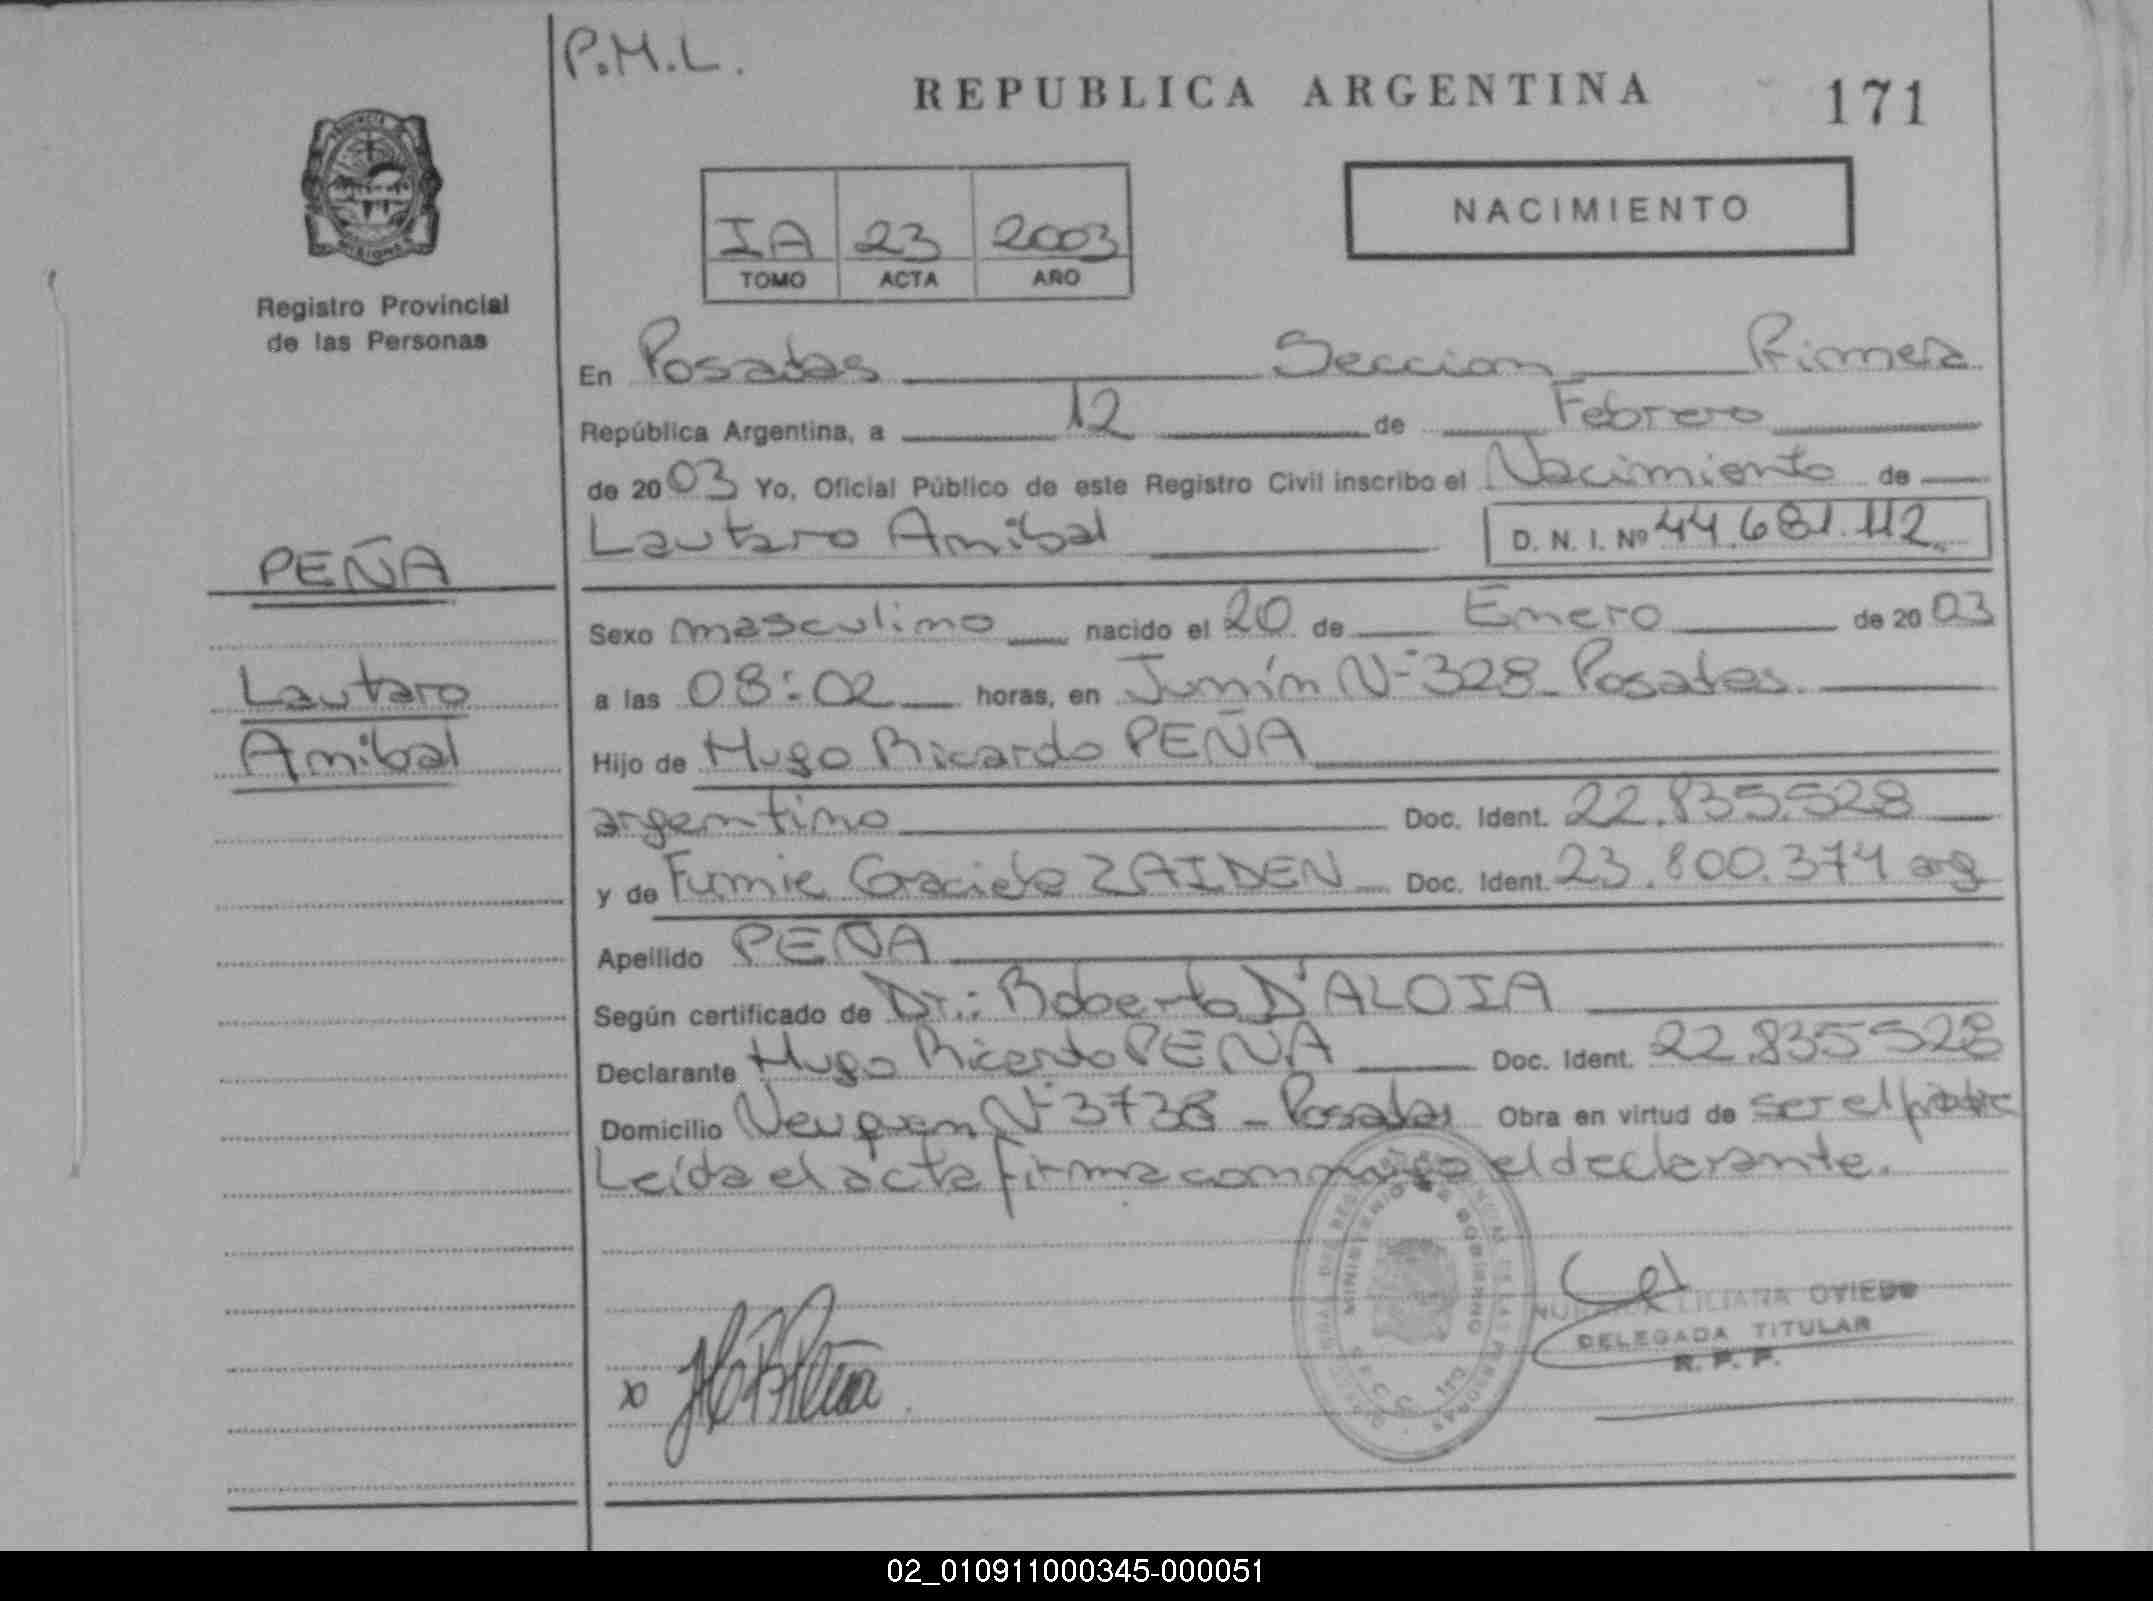 P.M.L.
REPUBLICA ARGENTINA
171
NACIMIENTO
IA 23 2003
TOMO ACTA AÑO
Registro Provincial
de las Personas
En Posadas Seccion Primera
República Argentina, a 12 de Febrero
de 2003 Yo, Oficial Público de este Registro Civil inscribo el Nacimiento de
Lautaro Anibal D. N. I. Nº 44.681.112
PEÑA
Lautaro
Anibal
Sexo masculino nacido el 20 de Enero de 2003
a las 08:02 horas, en Junín Nº 328 - Posadas
Hijo de Hugo Ricardo PEÑA
argentino Doc. Ident. 22.835.528
y de Graciela ZAIDEN Doc. Ident. 23.800.374 arg
Apellido PEÑA
Según certificado de Dr.: Roberto D'ALOIA
Declarante Hugo Ricardo PEÑA Doc. Ident. 22.835528
Domicilio Neuquen Nº 3738 - Posadas Obra en virtud de ser el padre
Leída el acta firma conmigo el declarante.
MINISTERIO DE GOBIERNO
LILIANA OVIEDO
DELEGADA TITULAR
R. P. P.
02_010911000345-000051